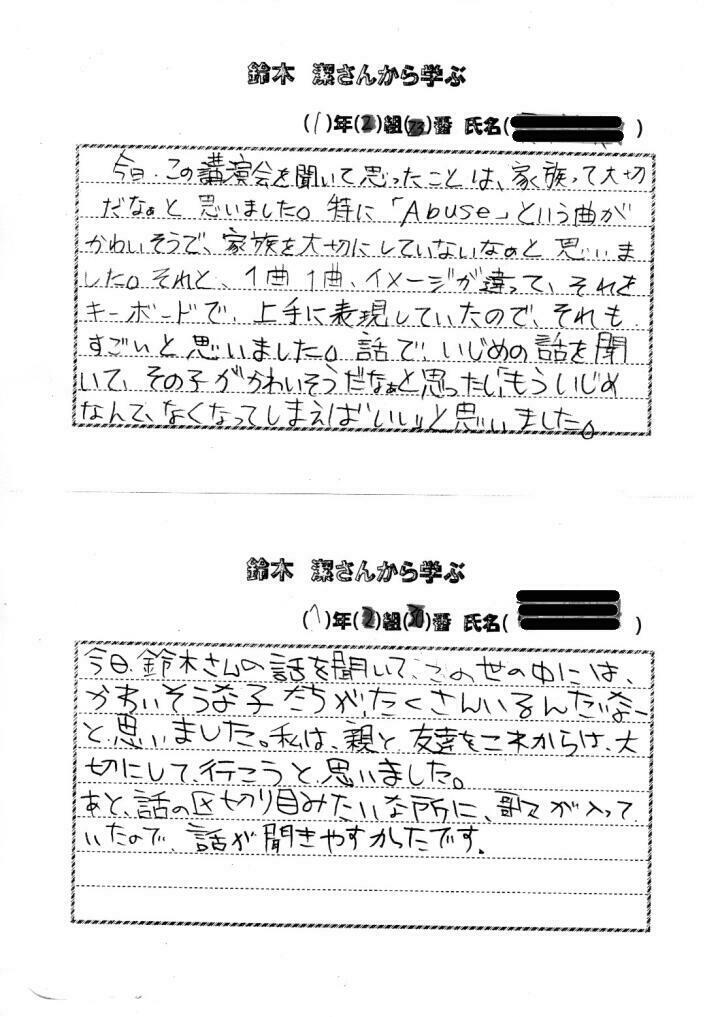 鈴木 潔さんから学ぶ
(1)年(2)組(23)番 氏名( )
今日、この講演会を聞いて思ったことは、家族って大切
だなぁと思いました。特に「Abuse」という曲が
かわいそうで、家族を大切にしていないなぁと思いま
した。それと、1曲1曲、イメージが違って、それを
キーボードで、上手に表現していたので、それも
すごいと思いました。話で、いじめの話を聞
いて、その子がかわいそうだなぁと思ったし、もういじめ
なんて、なくなってしまえばいいと思いました。
鈴木 潔さんから学ぶ
(1)年(2)組( )番 氏名( )
今日、鈴木さんの話を聞いて、この世の中には、
かわいそうな子たちが、たくさんいるんだなー
と思いました。私は、親と友達をこれからは、大
切にして行こうと思いました。
あと、話の区切り目みたいな所に、歌が入って
いたので、話が聞きやすかったです。